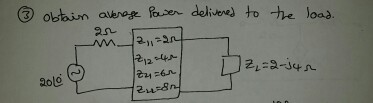 ③ obtain average Power delivered to the load.
2Ω
Z₁₁=2Ω
Z₁₂=4Ω
Z₂₁=6Ω
Z₂₂=8Ω
20∠0°
Z_L=2-j4Ω